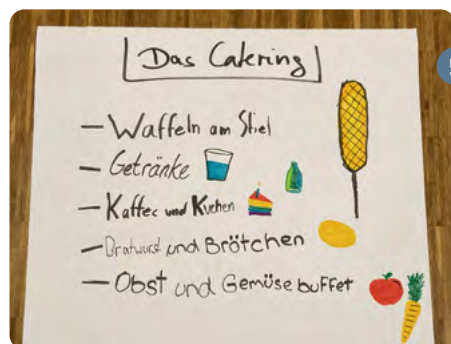 Das Catering
— Waffeln am Stiel
— Getränke
— Kaffee und Kuchen
— Bratwurst und Brötchen
— Obst und Gemüse buffet